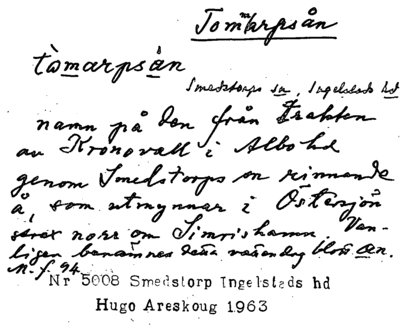 Tommarpsån
tòmarpsån
Smedstorps sn, Ingelstads hd
namn på den från Trakten
av Kronovall i Albo hd
genom Smedstorps sn rinnande
å, som utmynnar i Östersjön
strax norr om Simrishamn. Van-
ligen benämnes detta vattendrag blott åen.
M. f. 94
Nr 5008 Smedstorp Ingelstads hd
Hugo Areskoug 1963